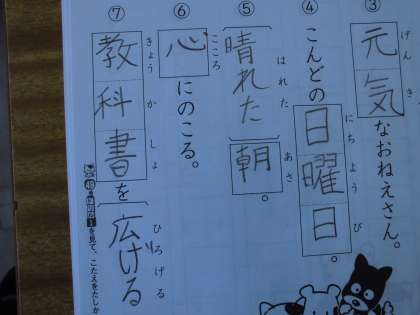 ③
元気なおねえさん。
げんき
④
こんどの日曜日。
にちようび
⑤
晴れた朝。
はれた
あさ
⑥
心にのこる。
こころ
⑦
教科書を広げる
きょうかしょ
ひろげる
を見て、こたえをたしか